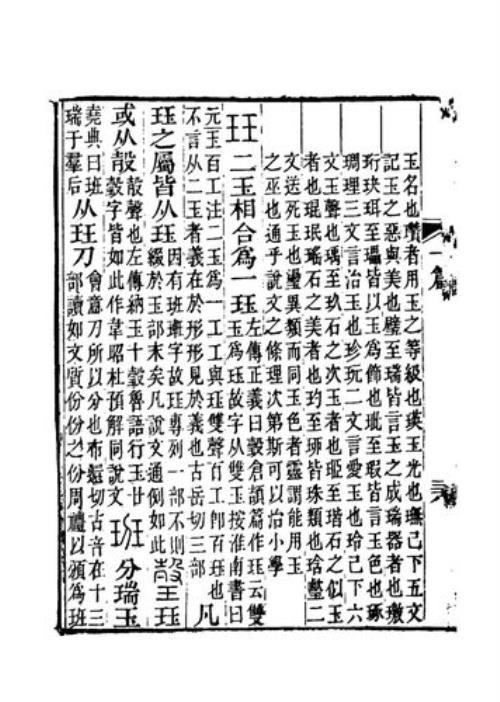 玉名也瓚者用玉之等級也瑛玉光也璑已下五文
記玉之惡與美也璧至瑞皆言玉之成瑞器者也璬
珩玦珥至瓃皆以玉爲飾也玼至瑕皆言玉色也琢
琱理三文言治玉也珍玩二文言愛玉也玲已下六
文玉聲也瑀至玖石之次玉者也㺿至瑎石之似玉
者也琨珉瑤石之美者也玓至珋皆珠類也琀𤪌二
文送死玉也瑬異類而同玉色者靈謂能用玉
之巫也通乎說文之條理次第斯可以治小學
玨 二玉相合爲一玨 左傳正義曰瑴倉頡篇作玨云雙
玉爲玨故字从雙玉按淮南書曰
元玉百工注二玉爲一工工與玨雙聲百工卽百玨也
不言从二玉者義在於形形見於義也古岳切三部 凡
玨之屬皆从玨 因有班𤦲字故玨專列一部不則
綴於玉部末矣凡說文通例如此 瑴 玨
或从㱿 㱿聲也左傳納玉十瑴魯語行玉廿
瑴字皆如此作韋昭杜預解同說文 班 分瑞玉
堯典曰班
瑞于羣后 从玨刀 會意刀所以分也布還切古音在十三
部讀如文質份份之份周禮以頒爲班